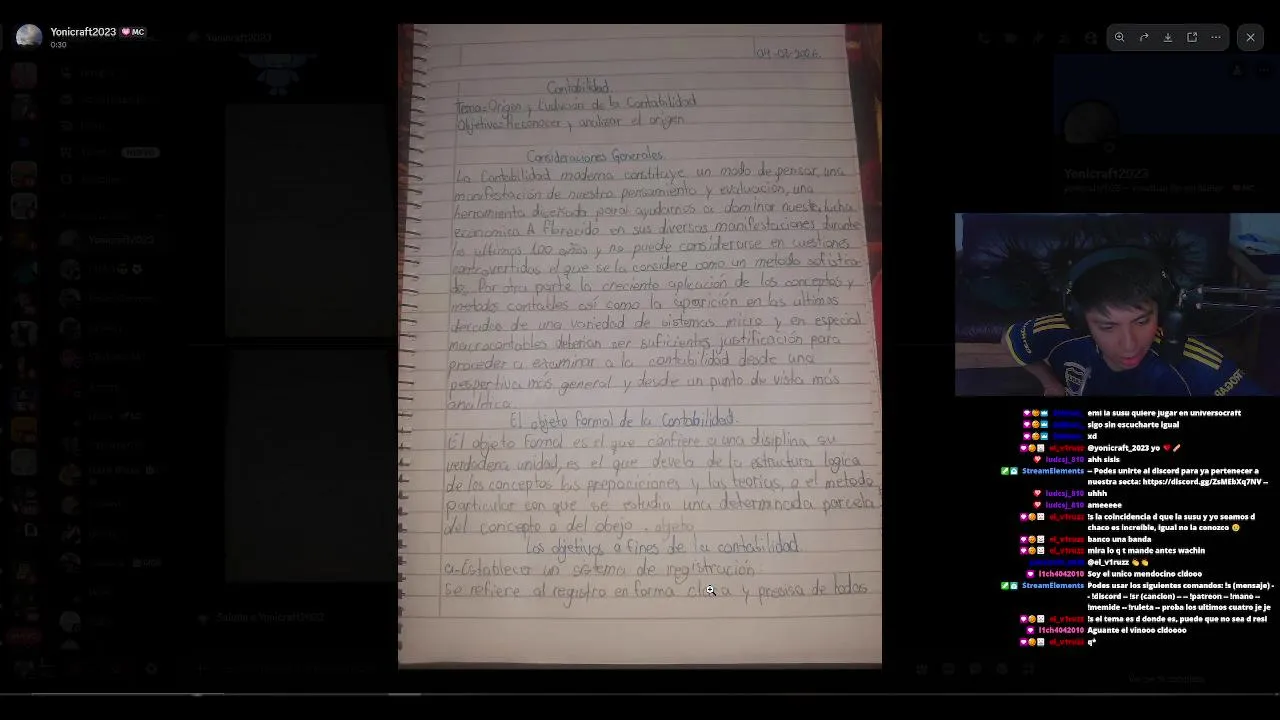 Yonicraft2023 MC
0:30
04-03-2026.
Contabilidad.
Tema=Origen y Evolución de la Contabilidad
Objetivo=Reconocer y analizar el origen
Consideraciones Generales.
La Contabilidad moderna constituye un modo de pensar, una
manifestación de nuestro pensamiento y evaluación, una
herramienta diseñada para ayudarnos a dominar nuestra lucha
economica A florecido en sus diversas manifestaciones durante
los ultimos 100 años y no puede considerarse en cuestiones
controvertidas el que se la considere como un metodo sofistra
do. Por otra parte la creciente aplicación de los conceptos y
metodos contables así como la aparición en las ultimas
decadas de una variedad de sistemas micro y en especial
macrocontables deberían ser suficientes justificación para
proceder a examinar a la contabilidad desde una
pespertiva más general y desde un punto de vista más
analítica.
El objeto formal de la Contabilidad.
El objeto Formal es el que confiere a una disiplina su
verdadera unidad, es el que devela de la estructura logica
de los conceptos las preposiciones y las teorías, o el metodo
particular con que se estudia una determinada parcela
del concepto o del obejo. objeto
Los objetivos o fines de la contabilidad.
a-Establecer un sistema de registración:
Se refiere al registro en forma clara y precisa de todas
Yonicraft2023
emi la susu quiere jugar en universocraft
sigo sin escucharte igual
xd
el_v1ruzz @yonicraft_2023 yo
ludcsj_810 ahh sisis
StreamElements -- Podes unirte al discord para ya pertenecer a
nuestra secta: https://discord.gg/ZsMEbXq7NV --
ludcsj_810 uhhh
ludcsj_810 ameeeee
el_v1ruzz !s la coincidencia d que la susu y yo seamos d
chaco es increible, igual no la conozco
el_v1ruzz banco una banda
el_v1ruzz mira lo q t mande antes wachin
@el_v1ruzz
l1ch4042010 Soy el unico mendocino cldooo
StreamElements Podes usar los siguientes comandos: !s (mensaje) -
- !discord -- !sr (cancion) -- -- !patreon -- !mano --
!memide -- !ruleta -- proba los ultimos cuatro je je
el_v1ruzz !s el tema es d donde es, puede que no sea d resi
l1ch4042010 Aguante el vinooo cldoooo
el_v1ruzz q*